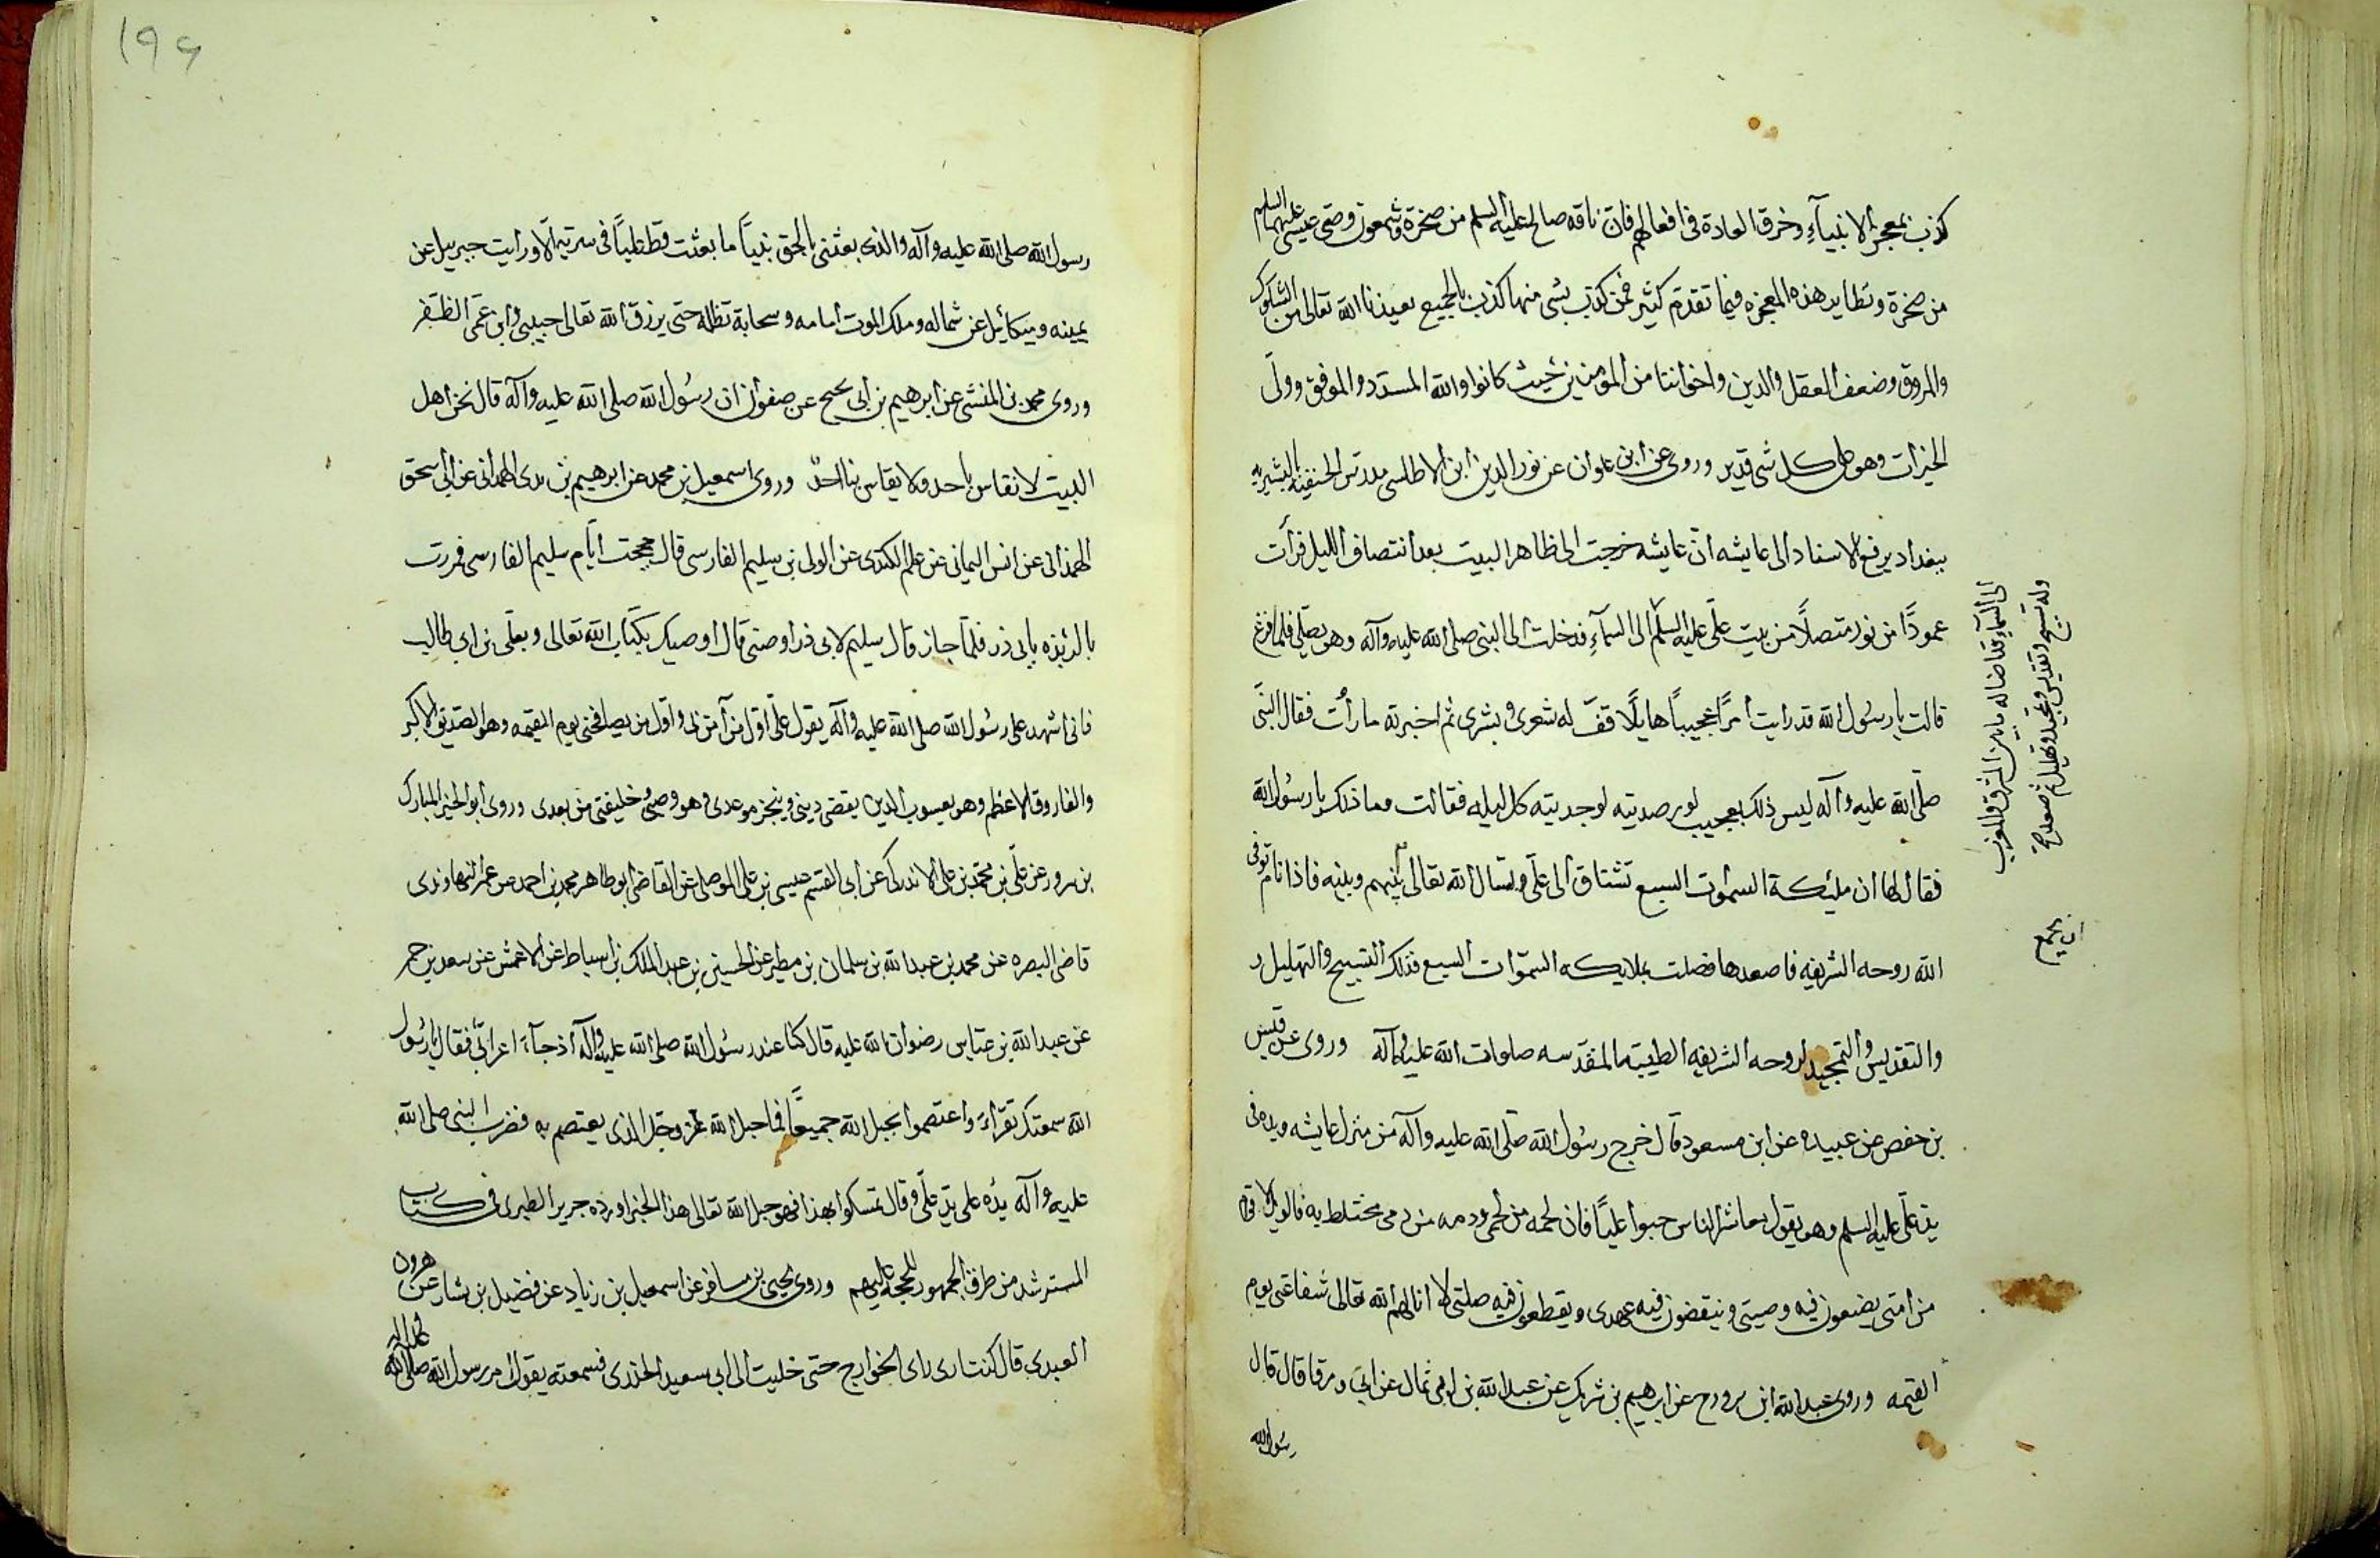 كذب بمعجز الانبيآء وخرق العادة فى افعالهم فان ناقه صالح عليه السلم من صخرة وشمعون وصى عيسى عليهما السلم
من صخرة ونظاير هذه المعجزه فيما تقدم كثير فمن كذب بشى منها كذب بالجميع نعيذنا الله تعالى من الشكوك
والمروق وضعف العقل والدين واخواننا من المومنين حيث كانوا والله المسدد والموفق وولى
الخيرات وهو على كل شى قدير وروى عن ابن علوان عن نور الدين ابن الاطلسى مدرس الحنفيه بالبشيريه
ببغداد يرفع الاسناد الى عايشه ان عايشه خرجت الى ظاهر البيت بعد انتصاف الليل فرأت
عمودًا من نور متصلًا من بيت على عليه السلم الى السمآء فدخلت الى النبى صلى الله عليه وآله وهو يصلى فلما فرغ
قالت يا رسول الله قد رايت امرًا عجيبًا هايلًا قف له شعرى وبشرى ثم اخبرته ما رأت فقال النبى
صلى الله عليه وآله ليس ذلك بعجيب لو رصديته لوجديته كل ليله فقالت وما ذلك يا رسول الله
فقال لها ان مليكة السموات السبع تشتاق الى على وتسال الله تعالى بينهم وبينه فاذا نام توفى
الله روحه الشريفه فاصعدها فصلت بملايكه السموات السبع فذلك التسبيح والتهليل
والتقديس والتمجيد لروحه الشريفه الطيبه المقدسه صلوات الله عليه وآله وروى عن قيس
بن حفص عن عبيده عن ابن مسعود قال خرج رسول الله صلى الله عليه وآله من منزل عايشه ويده فى
يد على عليه السلم وهو يقول معاشر الناس حبوا عليًا فان لحمه من لحمى ودمه من دمى مختلط به فالويل لاقوام
من امتى يضيعون فيه وصيتى وينقضون فيه عهدى ويقطعون فيه صلتى لا انالهم الله تعالى شفاعتى يوم
القيمه وروى عبد الله ابن عن ابرهيم بن شريك عن عبد الله بن عن ابى قال قال
رسول الله
الى السمآء فاضا له ما بين المشرق والمغرب
وله تسبيح وتقديس وتمجيد وتهليل ثم صعد
ان يجمع
۱۹۶
رسول الله صلى الله عليه وآله والذى بعثنى بالحق نبيًا ما بعثت قط عليًا فى سرية الا ورايت جبرييل عن
يمينه وميكائيل عن شماله وملك الموت امامه وسحابة تظله حتى يرزق الله تعالى حبيبى وابن عمى الظفر
وروى محمد بن المنثى عن ابرهيم بن ابى يحيى عن صفوان ان رسول الله صلى الله عليه وآله قال نحن اهل
البيت لا نقاس باحد ولا يقاس بنا احد وروى اسمعيل بن محمد عن ابرهيم بن الهمدانى عن ابى اسحق
الهمدانى عن انس اليمانى عن الكندى عن الولى بن سليم الفارسى قال حججت ايام سليم الفارسى فمررت
بالربذه بابى ذر فلما جاز قال سليم لابى ذر اوصنى قال اوصيك بكتاب الله تعالى وبعلى بن ابى طالب
فانى اشهد على رسول الله صلى الله عليه وآله يقول على اول من آمن بى واول من يصافحنى يوم القيمه وهو الصديق الاكبر
والفاروق الاعظم وهو يعسوب الدين يقضى دينى وينجز موعدى وهو وصى وخليفتى من بعدى وروى ابو الخير المبارك
بن سرور عن على بن محمد بن على الاندركى عن ابى القسم عيسى بن على الموصلى عن القاضى ابو طاهر محمد بن احمد عن عمر النهاوندى
قاضى البصره عن محمد بن عبد الله بن سلمان بن مطير عن الحسين بن عبد الملك بن اسباط عن الاعمش عن سعد بن
عن عبد الله بن عباس رضوان الله عليه قال كنا عند رسول الله صلى الله عليه وآله اذ جآء اعرابى فقال يا رسول
الله سمعتك تقراء واعتصموا بحبل الله جميعًا فما حبل الله عز وجل الذى يعتصم به فضرب النبى صلى الله
عليه وآله يده على يد على وقال تمسكوا بهذا فهو حبل الله تعالى هذا الخبر اورده جرير الطبرى فى كتاب
المسترشد من طرق الجمهور للحجه عليهم وروى يحيى بن مسافر عن اسمعيل بن زياد عن فضيل بن يشار عن هرون
العبدى قال كنت ارى راى الخوارج حتى خليت الى ابى سعيد الخدرى فسمعته يقول امر رسول الله صلى الله عليه وآله